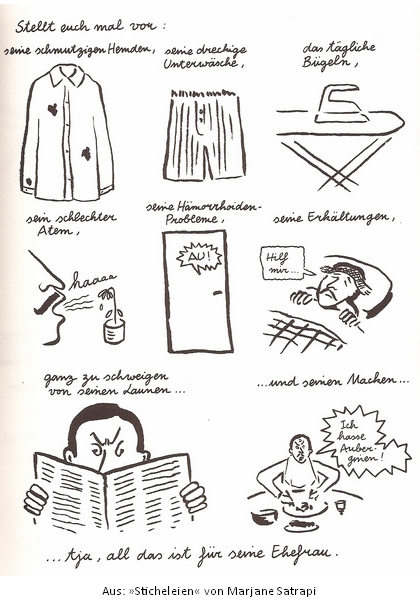 Stellt euch mal vor:
seine schmutzigen Hemden,
seine dreckige
Unterwäsche,
das tägliche
Bügeln,
sein schlechter
Atem,
haaaa
seine Hämorrhoiden-
Probleme,
AU!
seine Erkältungen,
Hilf
mir...
ganz zu schweigen
von seinen Launen...
...und seinen Macken...
Ich
hasse
Auber-
ginen!
...tja, all das ist für seine Ehefrau.
Aus: »Sticheleien« von Marjane Satrapi